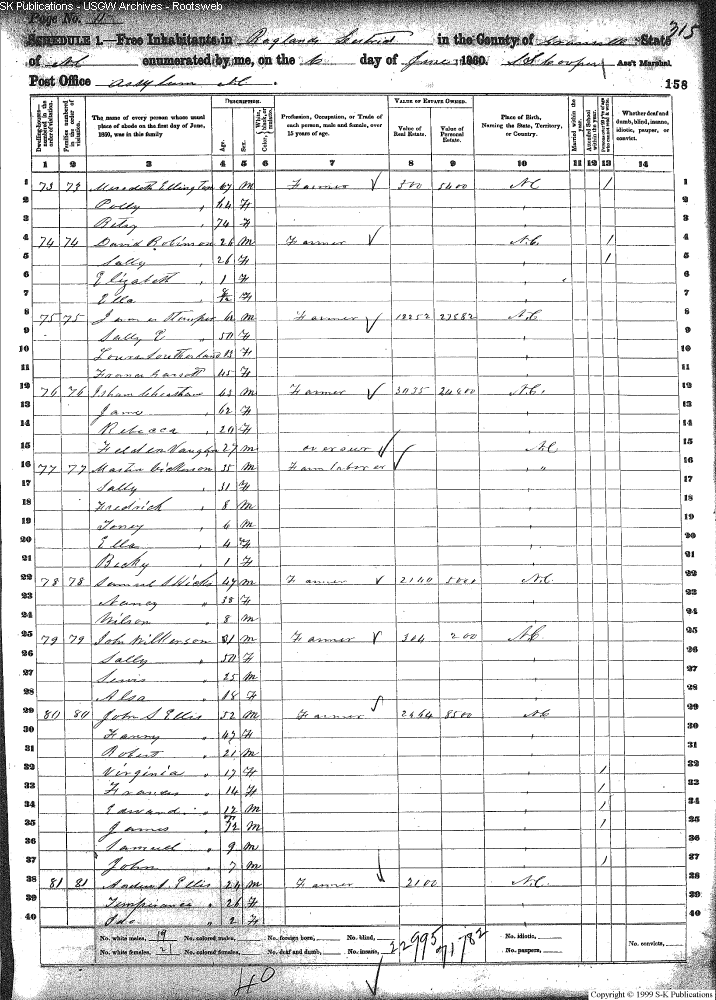 SK Publications - USGW Archives - Rootsweb
Page No. 11
315
SCHEDULE 1.—Free Inhabitants in Raglands District in the County of Granville State
of NC enumerated by me, on the 6 day of June 1860. Cooper Ass't Marshal.
Post Office NC. 158
DESCRIPTION. VALUE OF ESTATE OWNED.
Dwelling-houses—numbered in the order of visitation. Families numbered in the order of visitation. The name of every person whose usual place of abode on the first day of June, 1860, was in this family Age. Sex. Color, White, black, or mulatto. Profession, Occupation, or Trade of each person, male and female, over 15 years of age. Value of Real Estate. Value of Personal Estate. Place of Birth, Naming the State, Territory, or Country. Married within the year. Attended School within the year. Persons over 20 y'rs of age who cannot read & write. Whether deaf and dumb, blind, insane, idiotic, pauper, or convict.
1 2 3 4 5 6 7 8 9 10 11 12 13 14
1 73 73 Meredith Ellington 67 M Farmer 500 5400 NC / 1
2 Polly 64 F 2
3 Betsy 74 F 3
4 74 74 David Robinson 26 M Farmer NC. / 4
5 Sally 26 F / 5
6 Elizabeth 1 F 6
7 Ella F 7
8 75 75 62 M Farmer 12252 27582 NC 8
9 Sally E 50 F 9
10 Southerland F 10
11 45 F 11
12 76 76 Isham Cheatham 63 M Farmer 3035 24600 NC. 12
13 Jane 62 F 13
14 Rebecca 20 F 14
15 Vaughn 27 M overseer NC 15
16 77 77 Martin 35 M Farm laborer " 16
17 Sally 31 F 17
18 Fredrick 8 M 18
19 Toney 6 M 19
20 Ella 4 F 20
21 Becky 1 F 21
22 78 78 Samuel Hicks 47 M Farmer 2140 5000 NC. 22
23 Nancy 38 F 23
24 Wilson 8 M 24
25 79 79 John Wilkerson 51 M Farmer 304 200 NC 25
26 Sally 50 F 26
27 Lewis 25 M 27
28 Alsa 18 F 28
29 80 80 John S Ellis 52 M Farmer 2464 8500 NC 29
30 Fanny 47 F 30
31 Robert 21 M 31
32 Virginia 17 F / 32
33 Frances 14 F / 33
34 Edward 12 M / 34
35 James M / 35
36 Samuel 9 M 36
37 John 7 M / 37
38 81 81 Ellis 24 M Farmer 2100 NC. 38
39 Temperance 26 F 39
40 Ida 2 F 40
No. white males, 19 No. colored males, No. foreign born, No. blind, 22995 71782 No. idiotic,
No. white females, 21 No. colored females, No. deaf and dumb, No. insane, No. paupers, No. convicts,
40
Copyright © 1999 S-K Publications